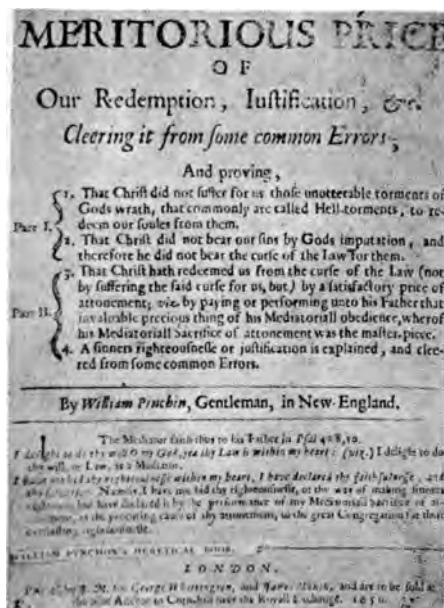 MERITORIOUS PRICE
OF
Our Redemption, Iustification, &c.
Cleering it from ſome common Errors;
And proving,
Part I.
1. That Chriſt did not ſuffer for us thoſe unutterable torments of
Gods wrath, that commonly are called Hell-torments, to re-
deem our ſoules from them.
2. That Chriſt did not bear our ſins by Gods imputation, and
therefore he did not bear the curſe of the Law for them.
Part II.
3. That Chriſt hath redeemed us from the curſe of the Law (not
by ſuffering the ſaid curſe for us, but) by a ſatisfactory price of
attonement; viz. by paying or performing unto his Father that
invaluable precious thing of his Mediatoriall obedience, wherof
his Mediatoriall Sacrifice of attonement was the maſter-piece.
4. A ſinners righteouſneſſe or juſtification is explained, and clee-
red from ſome common Errors.
By William Pinchin, Gentleman, in New-England.
The Mediator ſaith thus to his Father in Pſal 40.8,10.
I delight to do thy will O my God, yea thy Law is within my heart: (viz.) I delight to do
thy will, or Law, as a Mediator.
I have not hid thy righteouſneſſe within my heart, I have declared thy faithfulneſſe, and
thy ſalvation. Namely, I have not hid thy righteouſneſſe, or thy way of making ſinners
but have declared it by the performance of my Mediatoriall Sacrifice of
the procuring cauſe of thy attonement, to the great Congregation for their
WILLIAM PYNCHON'S HERETICAL BOOK.
LONDON,
George Whittington, and James Moxon, and are to be ſold at
the blue Anchor in Cornhill neer the Royall Exchange. 1650.